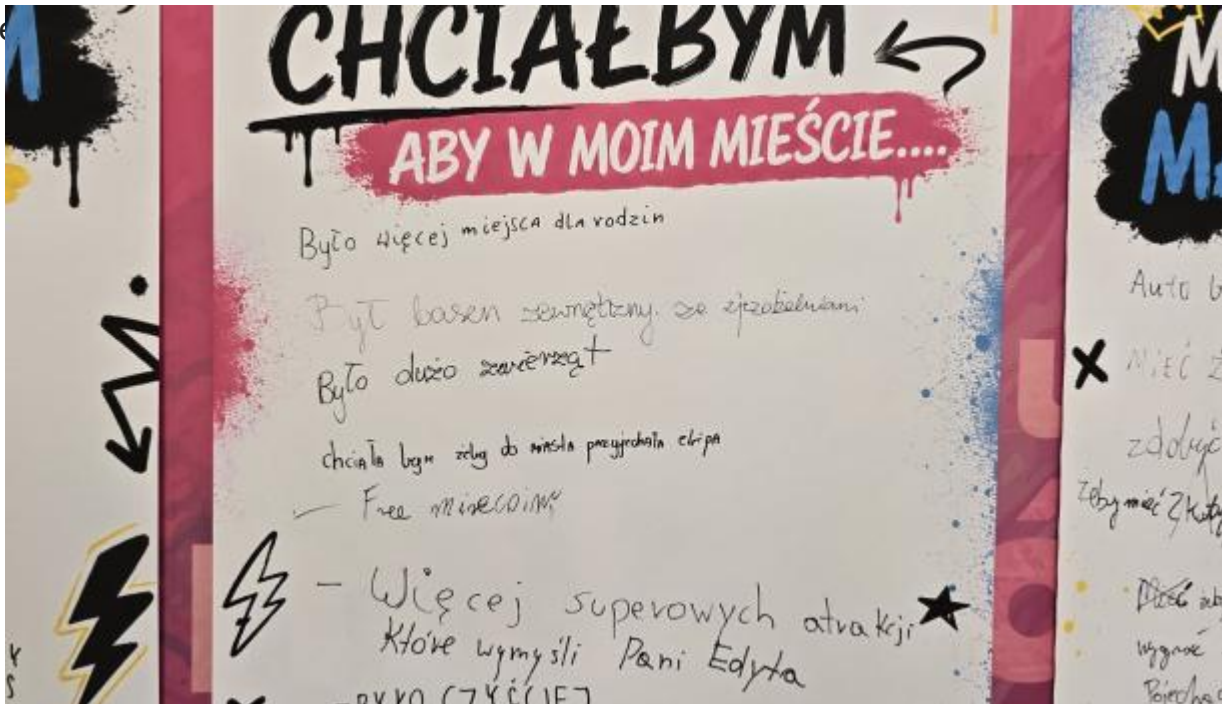 CHCIAŁBYM
ABY W MOIM MIEŚCIE....
Było więcej miejsca dla rodzin
Był basen zewnętrzny ze zjeżdżalniami
Było dużo zwierząt
chciała bym żeby do miasta przyjechała ekipa
– Free
– Więcej superowych atrakcji
Które wymyśli Pani Edyta
- BYŁO CZYŚCIEJ
Auto
MIEĆ
zdobyć
żeby mieć
wygrać